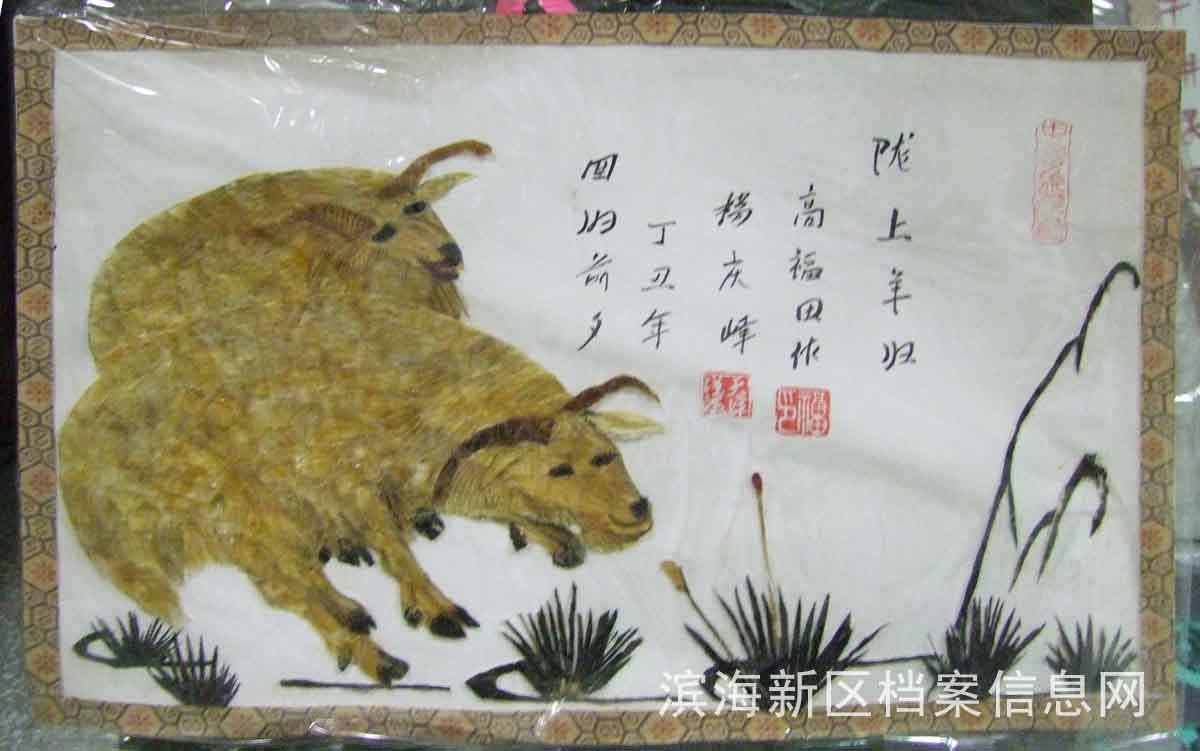 陇上羊归
高福田作
楊庆峰
丁丑年
回归前夕
滨海新区档案信息网